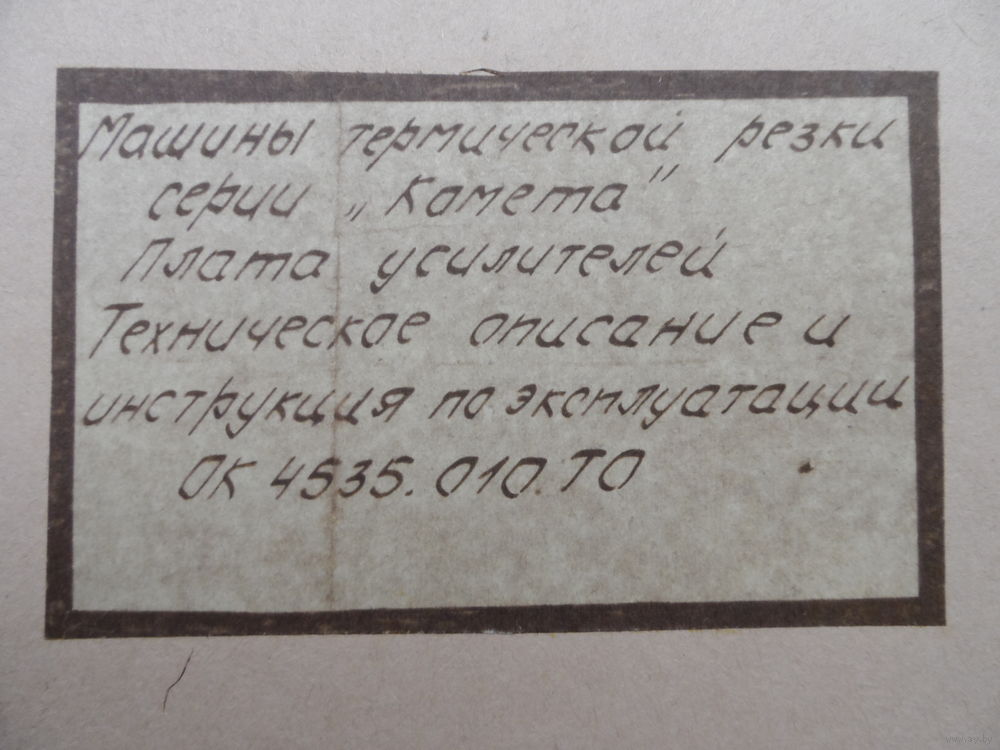 Машины термической резки
серии „Комета"
Плата усилителей
Техническое описание и
инструкция по эксплуатации
ОК 4535.010.ТО
www.ay.by